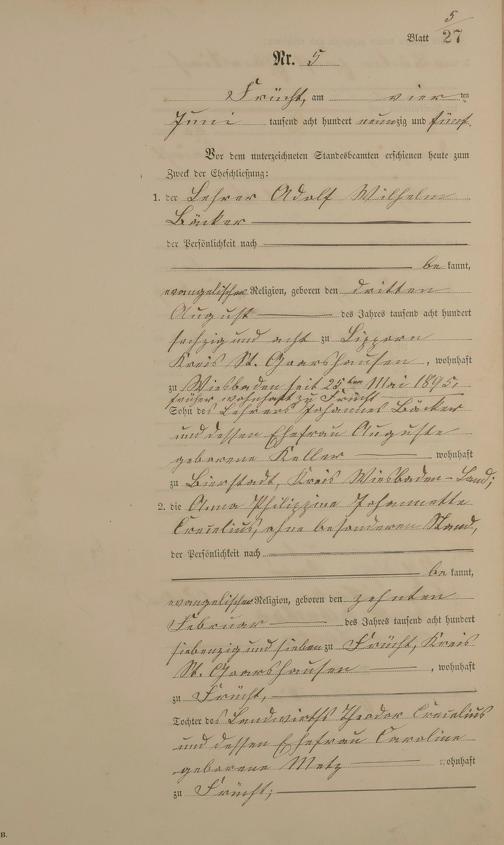 5
Blatt 27
Nr. 5
Frücht, am vier ten
Juni tausend acht hundert neunzig und fünf.
Vor dem unterzeichneten Standesbeamten erschienen heute zum
Zweck der Eheschließung:
1. der Lehrer Adolf Wilhelm
Bäcker
der Persönlichkeit nach
be kannt,
evangelischer Religion, geboren den dritten
August des Jahres tausend acht hundert
sechzig und acht zu Lipporn
Kreis St. Goarshausen, wohnhaft
zu Wiesbaden seit 25ten Mai 1895,
früher wohnhaft zu Frücht
Sohn des Lehrers Johannes Bäcker
und dessen Ehefrau Auguste
geborene Keller wohnhaft
zu Bierstadt, Kreis Wiesbaden-Land;
2. die Anna Philippine Johannette
Crecelius, ohne besonderen Stand,
der Persönlichkeit nach
be kannt,
evangelischer Religion, geboren den zehnten
Februar des Jahres tausend acht hundert
siebenzig und sieben zu Frücht, Kreis
St. Goarshausen, wohnhaft
zu Frücht,
Tochter des Landwirths Theodor Crecelius
und dessen Ehefrau Caroline
geborene Metz wohnhaft
zu Frücht;
B.